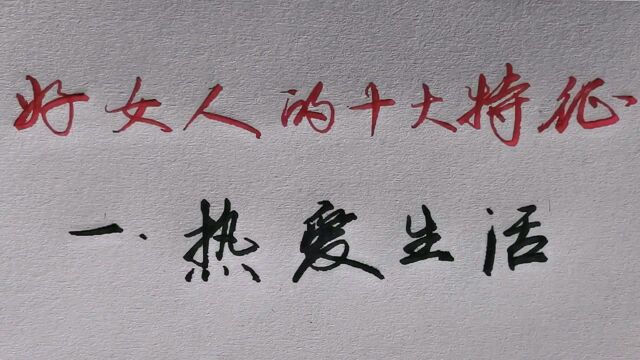 好女人的十大特征
一.热爱生活